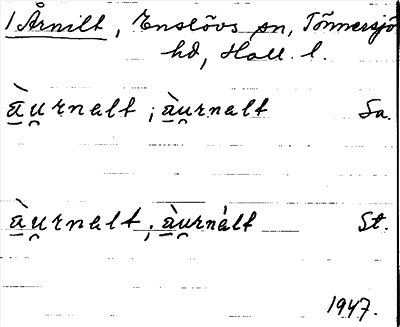 1 Årnilt, Enslövs sn, Tönnersjö
hd, Hall. l.
à̠u̯rnalt ; à̠u̯rnalt Sa.
à̠u̯rnalt ; à̠u̯rnàlt St.
1947.